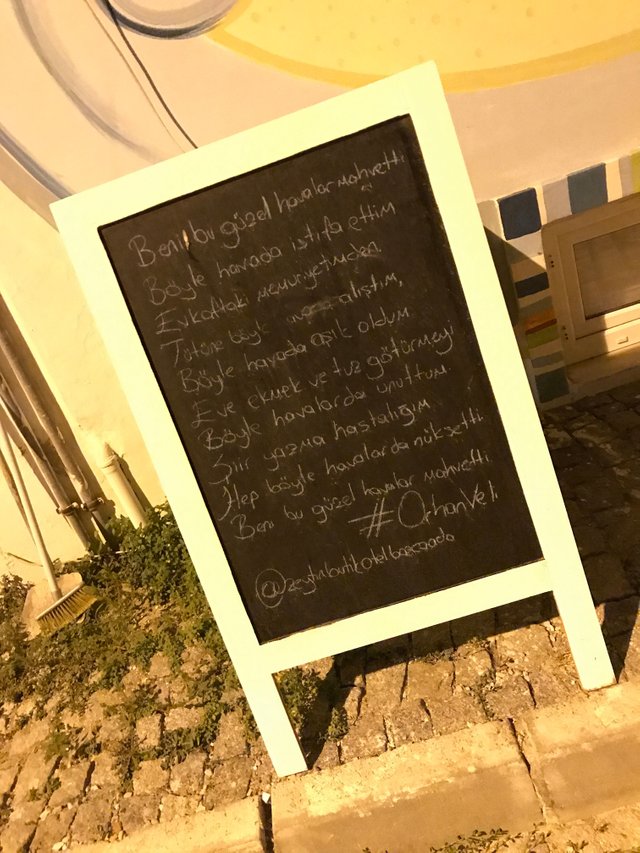 Beni bu güzel havalar mahvetti
Böyle havada istifa ettim
Evkaftaki memuriyetimden.
Tütüne böyle alıştım,
Böyle havada aşık oldum
Eve ekmek ve tuz götürmeyi
Böyle havalarda unuttum.
Şiir yazma hastalığım
Hep böyle havalarda nüksetti
Beni bu güzel havalar mahvetti
#OrhanVeli
@zeytinbutikotelbozcaada